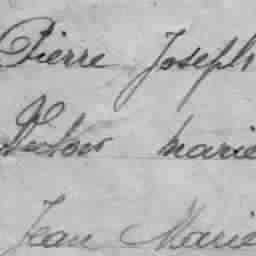 Pierre Joseph
Victor marie
Jean Marie